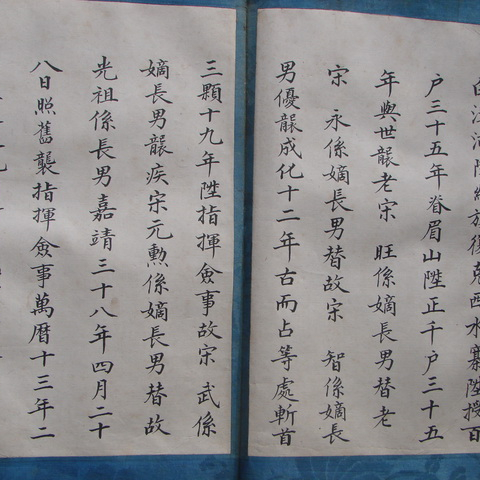 克西水寨陞授百
户三十五年脊眉山陞正千户三十五
年與世襲老宋 旺係嫡長男替老
宋 永係嫡長男替故宋 智係嫡長
男優襲成化十二年古而占等處斬首
三顆十九年陞指揮僉事故宋 武係
嫡長男襲疾宋元勳係嫡長男替故
光祖係長男嘉靖三十八年四月二十
八日照舊襲指揮僉事萬曆十三年二